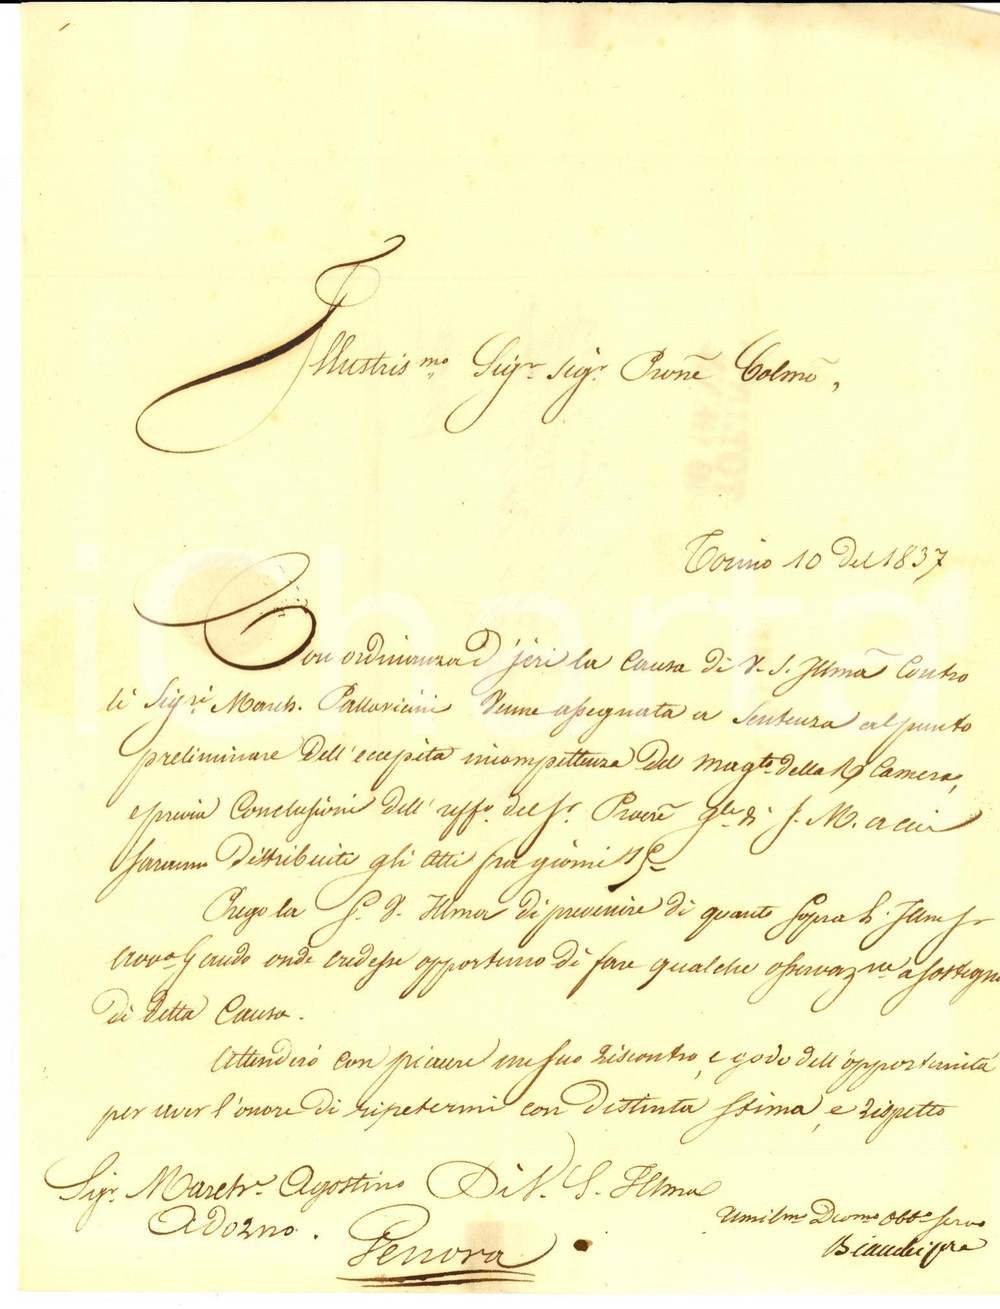 Illustris.mo Sig.r Sig.r Prone Colmo,
Torino 10 del 1837
Con ordinanza d'jeri la Causa di V. S. Illma Contro
li Sig.ri March. Pallavicini venne assegnata a Sentenza al punto
preliminare dell'eccepita incompettenza del Magto. della R. Camera,
e previe Conclusioni dell'uff.o del Sr. Procre Gle di S. M. a cui
saranno distribuiti gli Atti fra giorni 15
Prego la S. V. Illma di prevenire di quanto sopra l'Illmo Sr
Avv.o Gaudo onde credesse opportuno di fare qualche osservaz.ne a sostegno
di detta Causa.
Attenderò con piacere un suo riscontro, e godo dell'opportunità
per aver l'onore di ripetermi con distinta stima, e rispetto
Sigr. March. Agostino Di V. S. Illma
Adorno.
Genova
Umilmo Devmo Obbo Servo